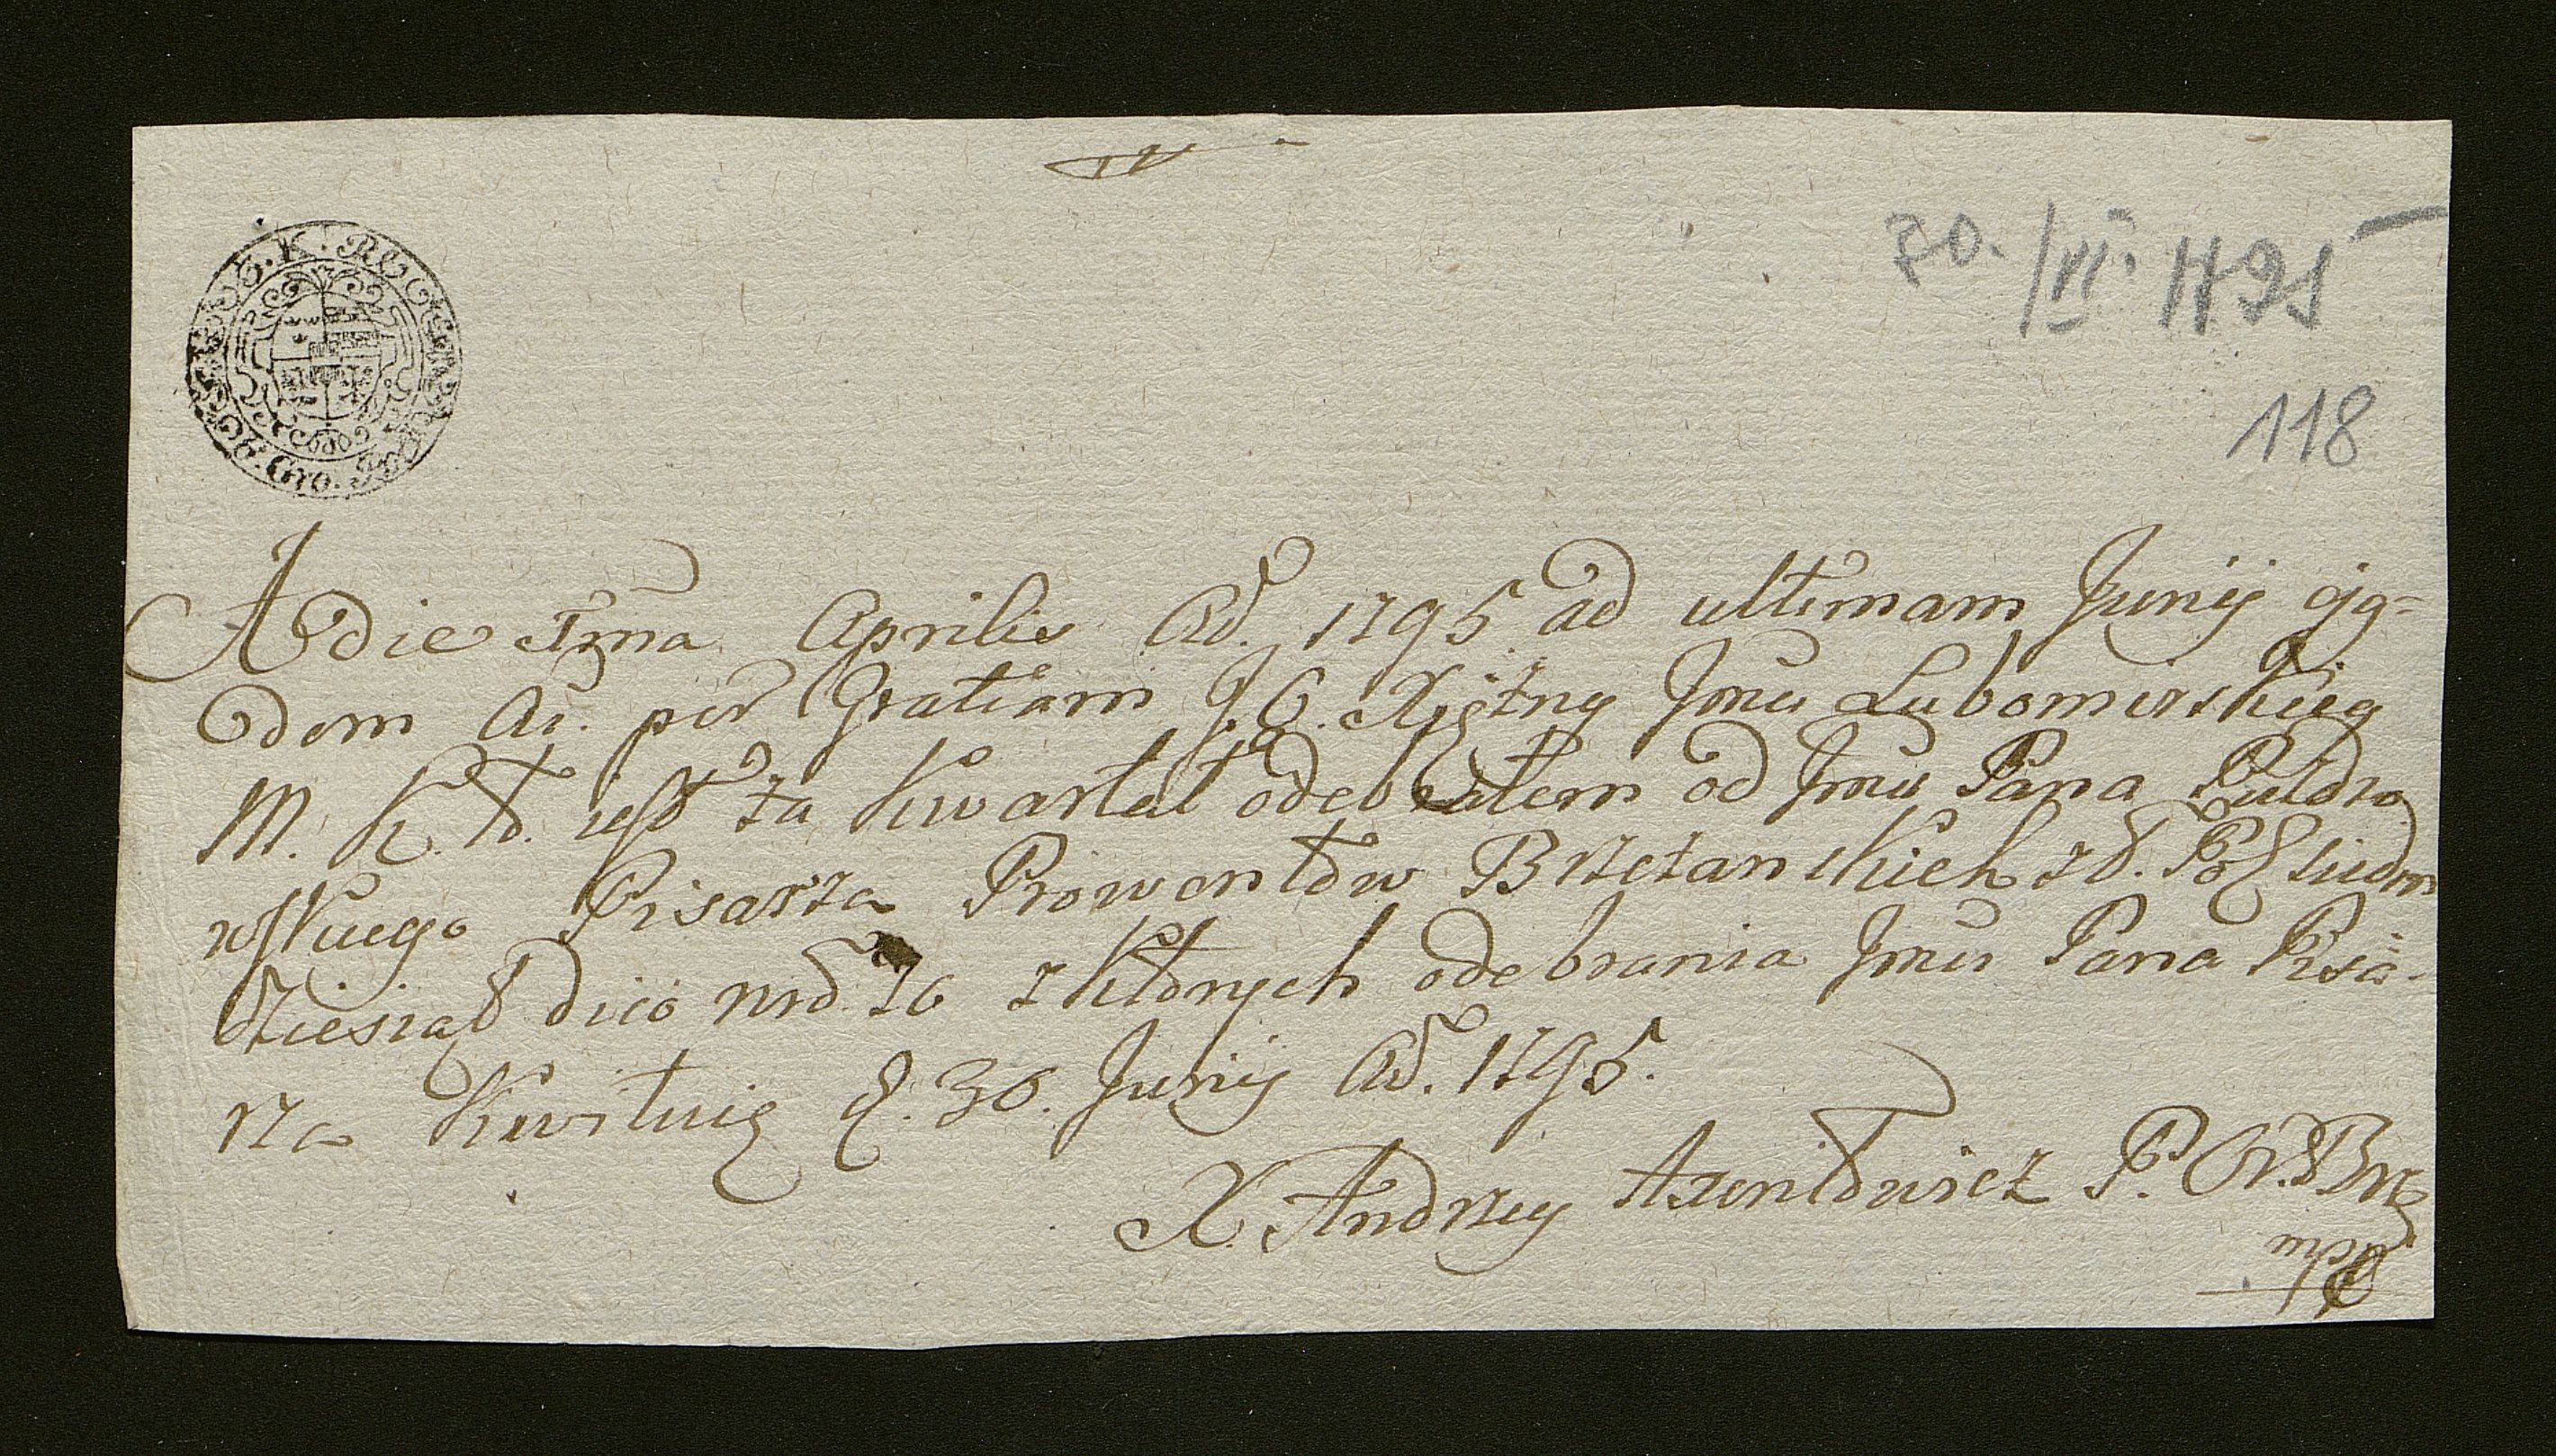 30. /VI. 1795
118
A die 1ma Aprilis Ad. 1795 ad ultimam Junij ejq-
dem Ai. per Gratiam J. O. Xiężny Jmci Lubomirskiey
M. K. d. jest za Kwartał odebrałem od Jmci Pana
wskiego Pisarza Prowentów Brzeżanskich zł. Pol. siedm
dziesiąt dico nro 70 z których odebrania Jmci Pana Pisa-
rza Kwituię d. 30. Junij Ad. 1795.
X. Andrzey P.
mpp